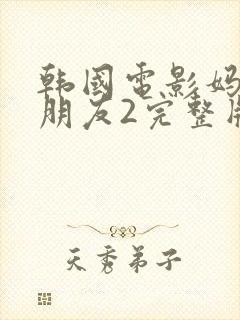 韩國電影妈
朋友2完整
天秀弟子